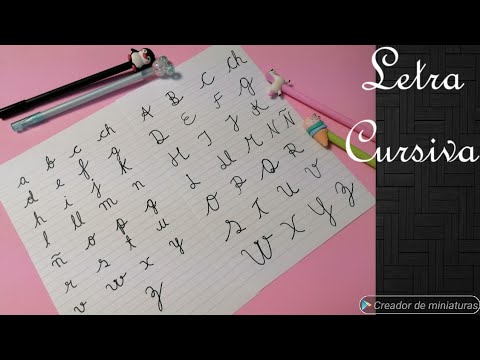 a b c ch
d e f g
h i j k
l ll m n
ñ o p q
r s t u
v w x y
z
A B C Ch
D E F G
H I J K
L Ll M N Ñ
O P Q R
S T U V
W X Y Z
Letra
Cursiva
Creador de miniaturas